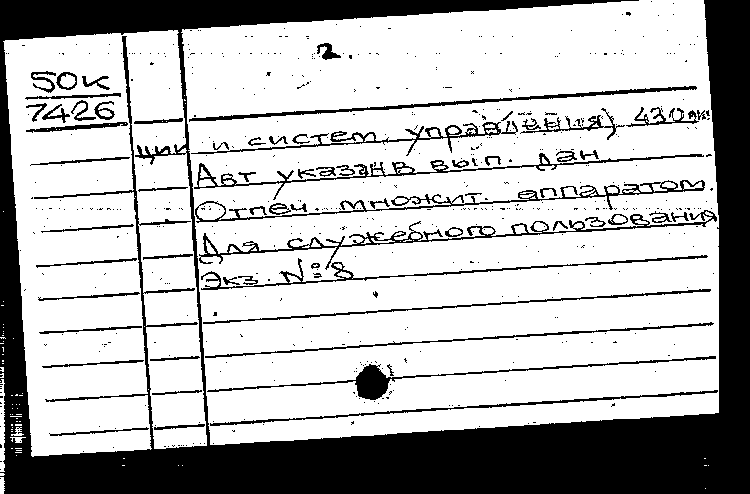 2.
50к
7426
ции и систем управления) 430экз
Авт указан в вып. дан.
Отпеч. множит. аппаратом.
Для служебного пользования
Экз. № 8